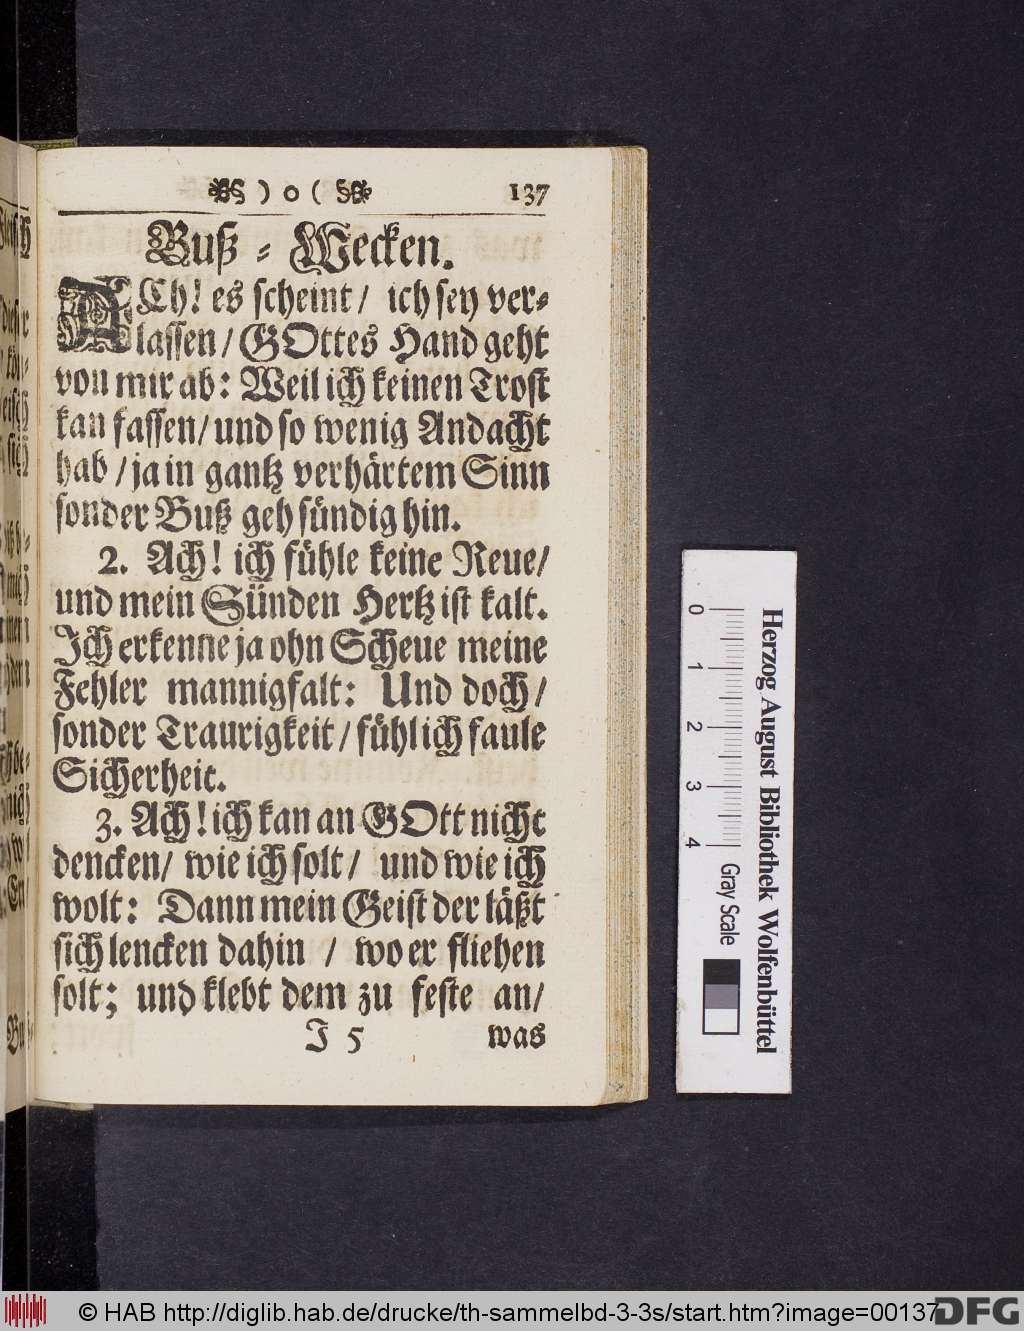 ) o ( 137
Buß-Wecken.
ACh! es scheint / ich sey ver-
lassen / GOttes Hand geht
von mir ab: Weil ich keinen Trost
kan fassen / und so wenig Andacht
hab / ja in gantz verhärtem Sinn
sonder Buß geh sündig hin.
2. Ach! ich fühle keine Reue /
und mein Sünden Hertz ist kalt.
Ich erkenne ja ohn Scheue meine
Fehler mannigfalt: Und doch /
sonder Traurigkeit / fühl ich faule
Sicherheit.
3. Ach! ich kan an GOtt nicht
dencken / wie ich solt / und wie ich
wolt: Dann mein Geist der läßt
sich lencken dahin / wo er fliehen
solt; und klebt dem zu feste an /
J 5 was
0 1 2 3 4
Gray Scale
Herzog August Bibliothek Wolfenbüttel
© HAB http://diglib.hab.de/drucke/th-sammelbd-3-3s/start.htm?image=00137
DFG